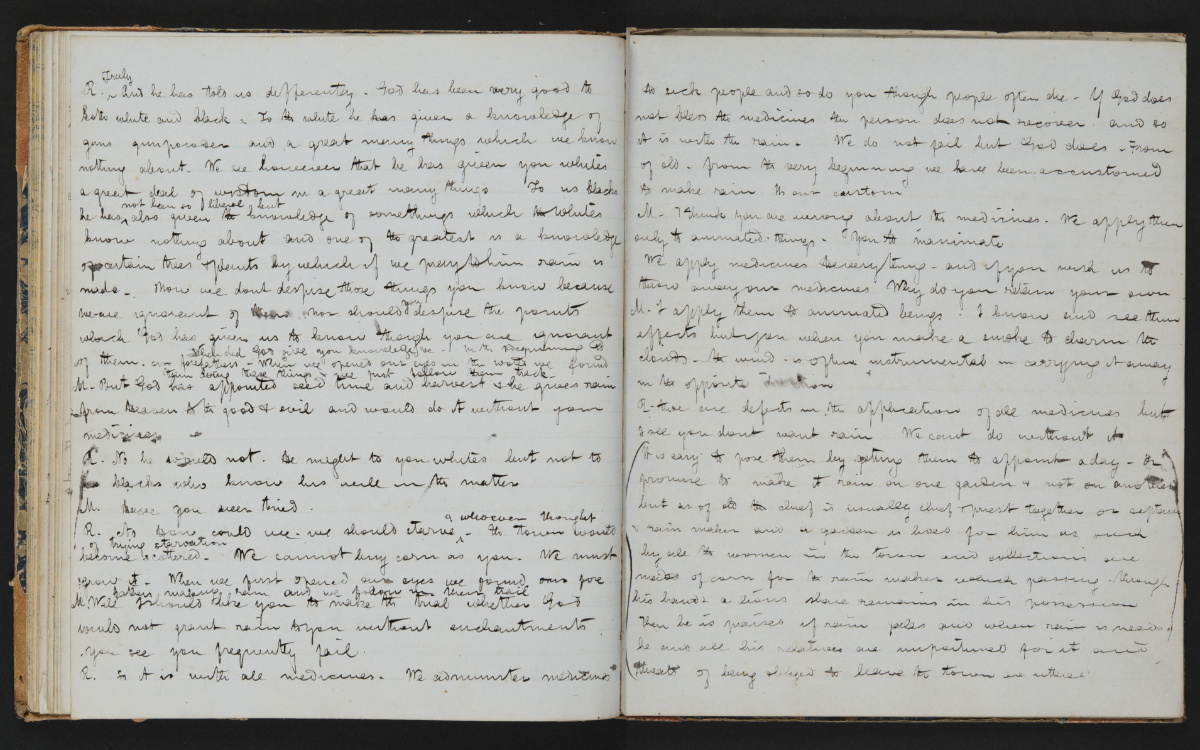 Truly
R. And he has told us differently. God has been very good to
both white and black. To the white he has given a knowledge of
guns gunpowder and a great many things which we know
nothing about. We see however that he has given you whites
a great deal of wisdom in a great many things To us blacks
not been so liberal, but
he has also given the knowledge of somethings which the whites
know nothing about and one of the greatest is a knowledge
of certain trees & plants by which if we pray to him rain is
made. Now we dont despise those things you know because
we are ignorant of nor should you despise the points
which God has given us to know though you are ignorant
of them. When did God give you knowledge &c. In the beginning
forefathers When we opened our eyes in the world we found
them doing these things & we just follow their track
M. But God has appointed seed time and harvest & he gives rain
from heaven to the good & evil and would do it without your
medicines
R. No he would not. He might to you whites but not to
blacks who know his will in the matter
M. Have you ever tried.
R. No How could we. we should starve. the town would
whoever thought
of trying starvation
become scattered. We cannot buy corn as you. We must
grow it. When we first opened our eyes we found our fore
fathers making rain and we follow in their trail
M. Well I should like you to make the trial whether God
would not grant rain to you without enchantments.
you see you frequently fail.
R. So it is with all medicines. We administer medicines
to sick people and so do you though people often die. If God does
not bless the medicines the person does not recover and so
it is with the rain. We do not fail but God does. From
of old. from the very beginning we have been accustomed
to make rain tis our custom
M. I think you are wrong about the medicines. We apply them
only to animated things. You to inanimate
We apply medicines to everything. and if you wish us to
throw away our medicines Why do you retain your own.
M. I apply them to animated beings. I know and see their
effects but when you make a smoke to charm the
clouds. the wind is often instrumental in carrying it away
in the opposite direction
R. there are defects in the application of all medicines but
I see you dont want rain We cant do without it
(It is easy to pose them by getting them to appoint a day. or
promise to make it rain on one garden & not on another
but as of old the chief is usually chief priest together or captain
& rain maker and a garden is hoed for him as such
by all the women in the town and collections are
made of corn for the rain maker which passing through
his hands a lions share remains in his possession
Then he is praised if rain falls and when rain is needed
he and all his relatives are importuned for it and
threats of being obliged to leave the town are uttered